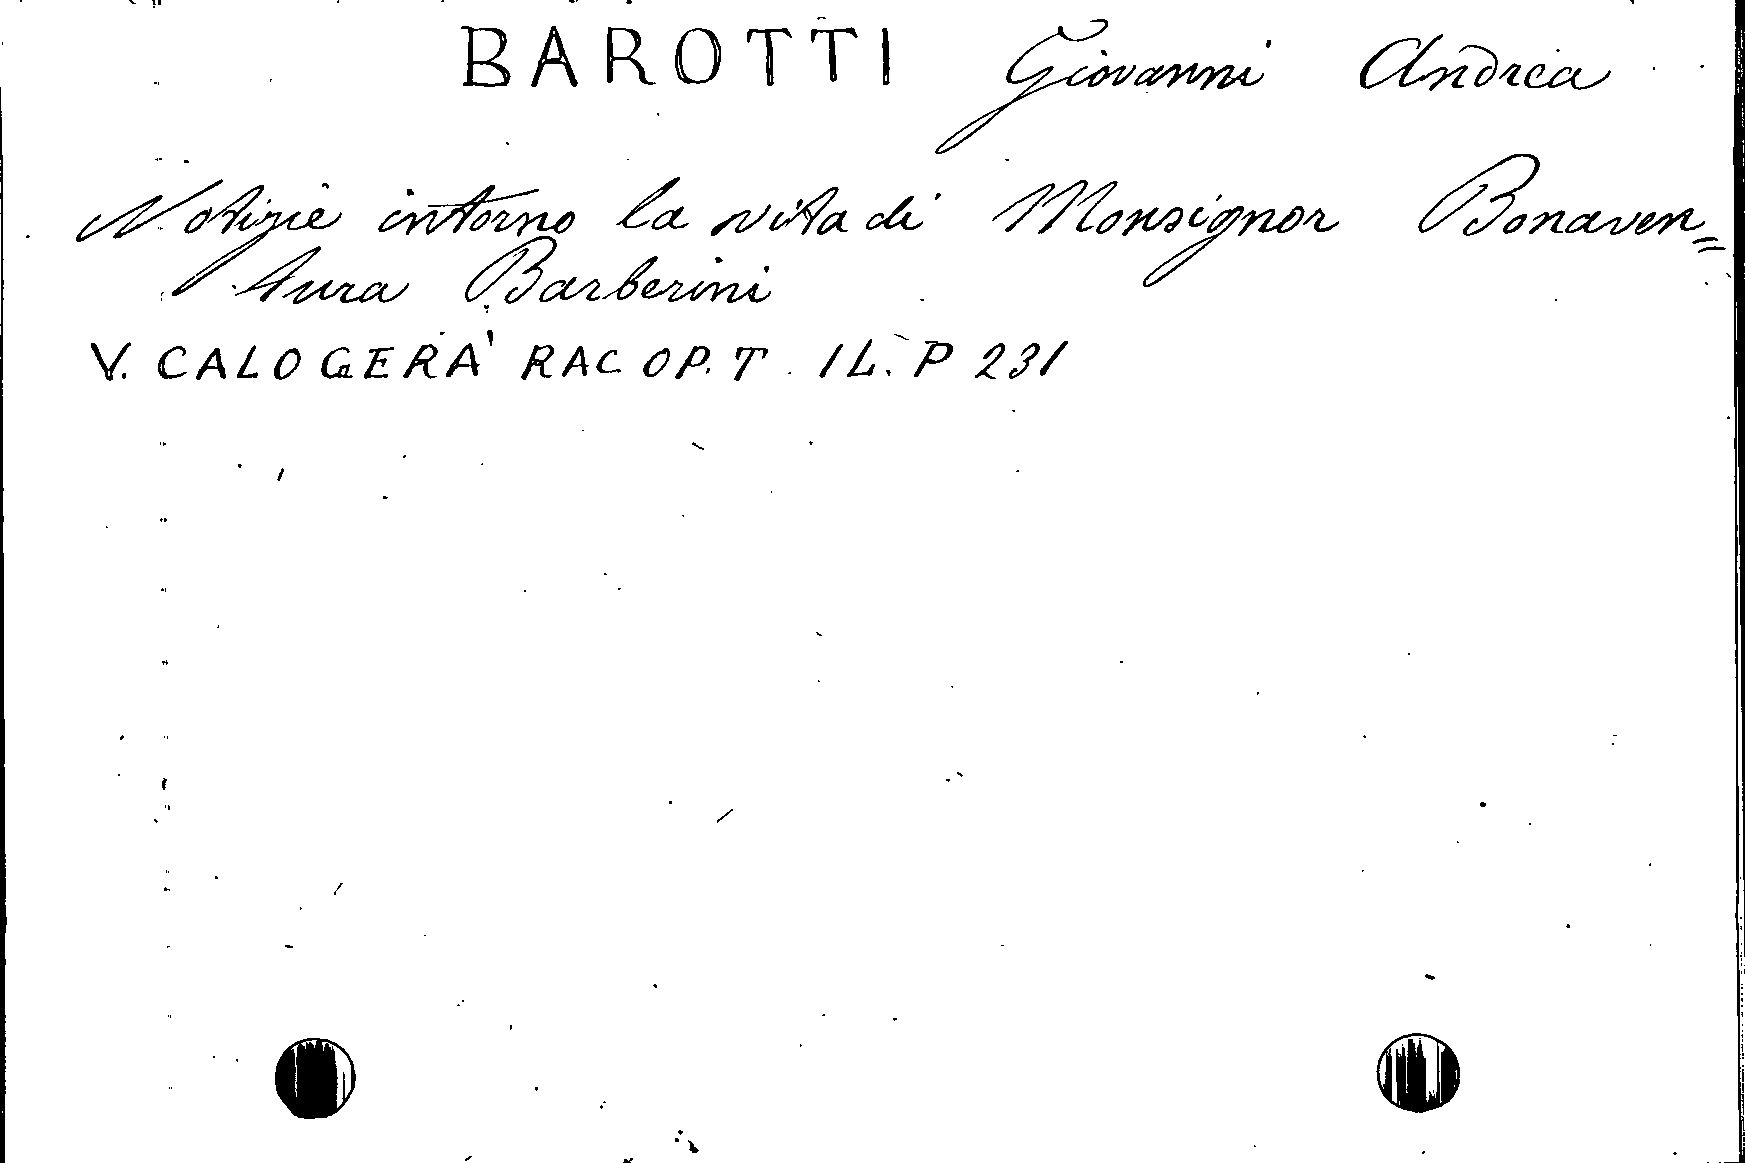 BAROTTI Giovanni Andrea
Notizie intorno la vita di Monsignor Bonaven=
tura Barberini
V. CALOGERÀ RAC OP. T. IL. P 231